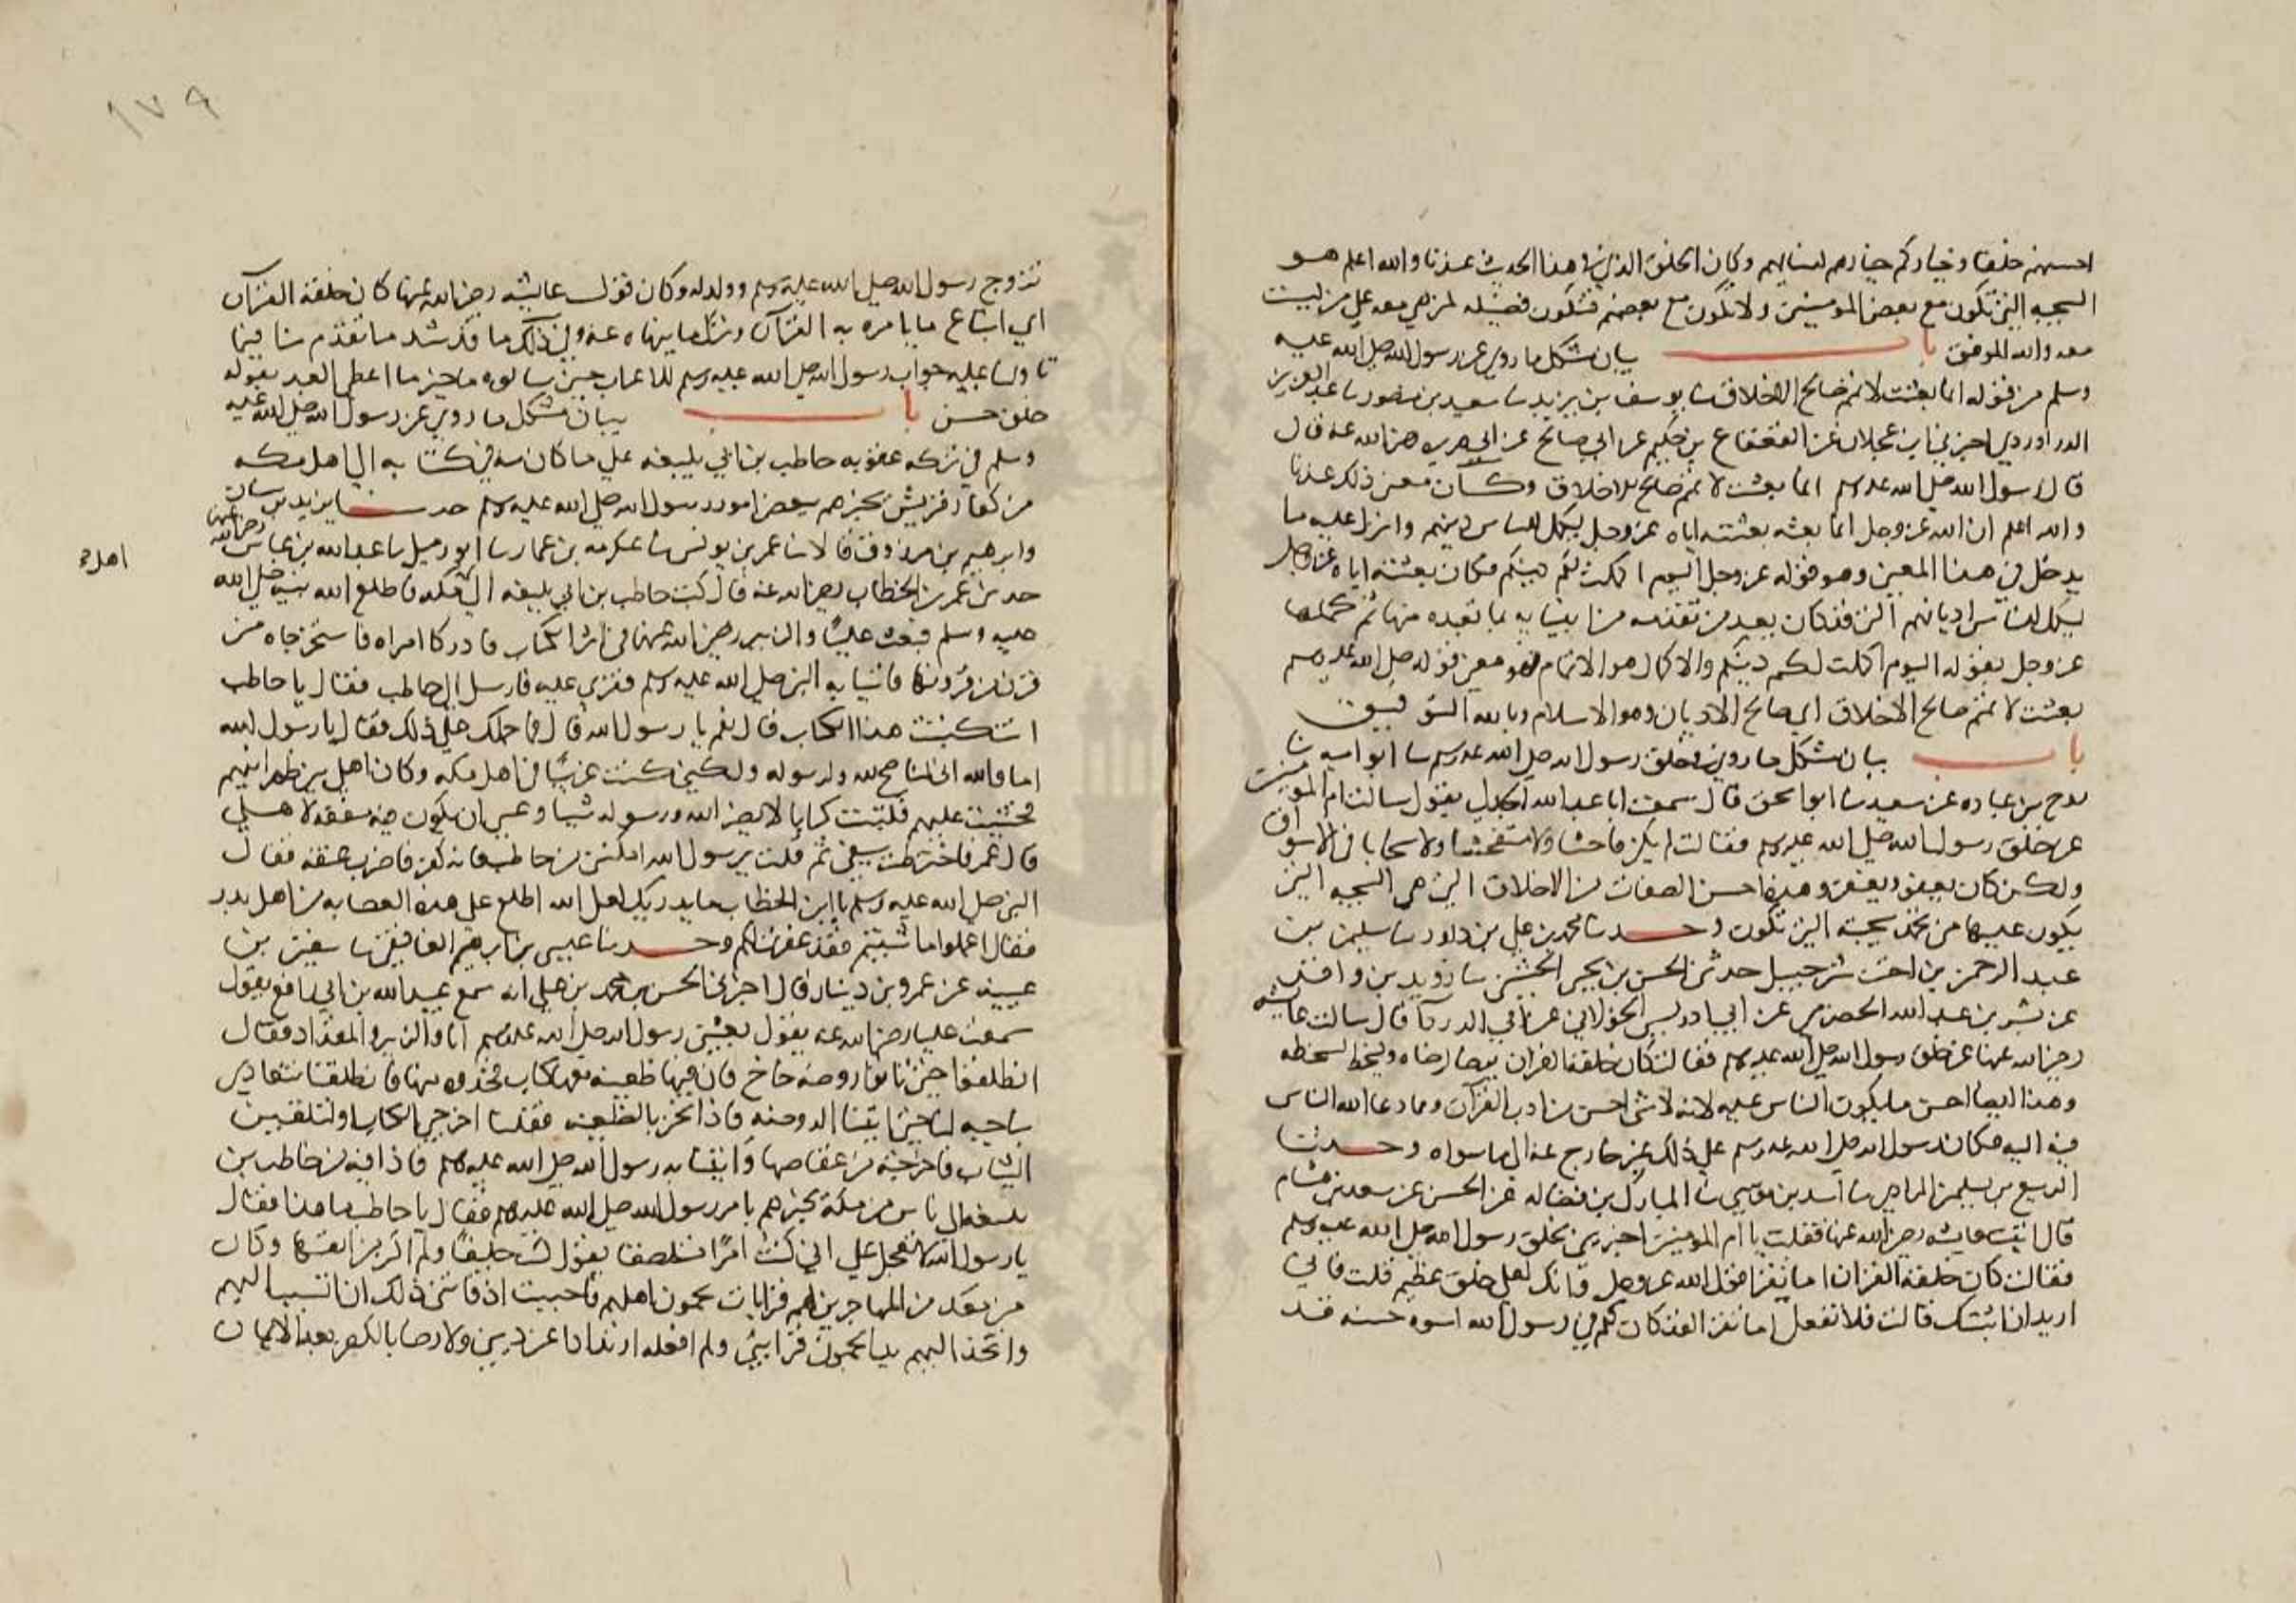 احسنهم خلقا وخياركم خياركم لنسايهم وكان الخلق الذي في هذا الحديث عندنا والله اعلم هو
السجيه التي تكون مع بعض المومنين ولا تكون مع بعضهم فتكون فضيله لمن هي معه علي من ليست
معه والله الموفق باب بيان مشكل ما روي عن رسول الله صلي الله عليه
وسلم من قوله انما بعثت لاتمم صالح الاخلاق سا يوسف بن يزيد سا سعيد بن منصور سا عبد العزيز
الدراوردي اخبرني ابن عجلان عن القعقاع بن حكيم عن ابي صالح عن ابي هريره رضي الله عنه قال
قال رسول الله صلي الله عليه وسلم انما بعثت لاتمم صالح الاخلاق وكان معني ذلك عندنا
والله اعلم ان الله عز وجل انما بعثه بعثته اياه عز وجل ليكمل للناس دينهم وانزل عليه مما
يدخل في هذا المعني وهو قوله عز وجل اليوم اكملت لكم دينكم فكان بعثته اياه عز وجل
ليكمل للناس اديانهم التي قد كان تعبد من تقدمه من انبيايه بما تعبده منها ثم كملها
عز وجل بقوله اليوم اكملت لكم دينكم والاكمال هو الاتمام فهو معني قوله صلي الله عليه وسلم
بعثت لاتمم صالح الاخلاق اي صالح الاديان وهو الاسلام وبالله التوفيق
باب بيان مشكل ما روي في خلق رسول الله صلي الله عليه وسلم سا ابو اميه سا
روح بن عباده عن سعيد سا ابو اسحق قال سمعت ابا عبد الله الجدلي يقول سالت ام المومنين
عن خلق رسول الله صلي الله عليه وسلم فقالت لم يكن فاحشا ولا متفحشا ولا سخابا في الاسواق
ولكن كان يعفو ويغفر وهذه احسن الصفات من الاخلاق التي هي السجيه التي
يكون عليها من تحمد سجيته التي تكون وحدثنا محمد بن علي بن داود سا سليمن بن
عبد الرحمن بن اخت شرحبيل حدثني الحسن بن يحيي الخشني سا زيد بن واقد
عن بشر بن عبد الله الحضرمي عن ابي ادريس الخولاني عن ابي الدردا قال سالت عايشه
رضي الله عنها عن خلق رسول الله صلي الله عليه وسلم فقالت كان خلقه القران يرضا لرضاه ويسخط لسخطه
وهذا ايضا احسن ما يكون الناس عليه لانه لا شي احسن من اداب القرآن ومما دعا الله الناس
فيه اليه فكان رسول الله صلي الله عليه وسلم علي ذلك غير خارج عنه الي ما سواه وحدثنا
الربيع بن سليمن المرادي سا اسد بن موسي سا المبارك بن فضاله عن الحسن عن سعد بن هشام
قال اتيت عايشه رضي الله عنها فقلت يا ام المومنين اخبريني بخلق رسول الله صلي الله عليه وسلم
فقالت كان خلقه القران اما تقرا قول الله عز وجل وانك لعلي خلق عظيم قلت فاني
اريد ان اتبتل قالت فلا تفعل اما تقرا لقد كان لكم في رسول الله اسوه حسنه قد
١٧٩
تزوج رسول الله صلي الله عليه وسلم وولد له وكان قول عايشه رضي الله عنها كان خلقه القرآن
اي اتباع ما يامره به القرآن وترك ما ينهاه عنه وفي ذلك ما قد شد ما تقدم منا فيما
تاولنا عليه جواب رسول الله صلي الله عليه وسلم للاعراب حين سالوه ما خير ما اعطي العبد بقوله
خلق حسن باب بيان مشكل ما روي عن رسول الله صلي الله عليه
وسلم في تركه عقوبه حاطب بن ابي بلتعه علي ما كان منه في كتابه الي اهل مكه
من كفار قريش يخبرهم ببعض امور رسول الله صلي الله عليه وسلم حدثنا يزيد بن سنان
وابرهيم بن مرزوق قالا سا عمر بن يونس سا عكرمه بن عمار سا ابو زميل سا عبد الله بن عباس رضي الله عنهما
حدثني عمر بن الخطاب رضي الله عنه قال كتب حاطب بن ابي بلتعه الي مكه فاطلع الله نبيه صلي الله
اهل
عليه وسلم فبعث عليا والزبير رضي الله عنهما في اثر الكتاب فادركا امراه فاستخرجاه من
قرن من قرونها فاتيا به النبي صلي الله عليه وسلم فقري عليه فارسل الي حاطب فقال يا حاطب
انت كتبت هذا الكتاب قال نعم يا رسول الله قال فما حملك علي ذلك فقال يا رسول الله
اما والله اني لناصح لله ولرسوله ولكني كنت غريبا في اهل مكه وكان اهلي بين ظهرانيهم
فخشيت عليهم فكتبت كتابا لا يضر الله ورسوله شيا وعسي ان يكون فيه منفعه لاهلي
قال عمر فاخترطت سيفي ثم قلت يرسول الله امكني من حاطب فانه كفر فاضرب عنقه فقال
النبي صلي الله عليه وسلم يا ابن الخطاب ما يدريك لعل الله اطلع علي هذه العصابه من اهل بدر
فقال اعملوا ما شيتم فقد غفرت لكم وحدثنا عيسي بن ابرهيم الغافقي سا سفين بن
عيينه عن عمرو بن دينار قال اخبرني الحسن بن محمد بن علي انه سمع عبيد الله بن ابي رافع يقول
سمعت عليا رضي الله عنه يقول بعثني رسول الله صلي الله عليه وسلم انا والزبير والمقداد فقال
انطلقوا حتي تاتوا روضه خاخ فان فيها ظعينه معها كتاب فخذوه منها فانطلقنا تتعادي
بنا خيلنا حتي اتينا الروضه فاذا نحن بالظعينه فقلنا اخرجي الكتاب او لتلقين
الثياب فاخرجته من عقاصها واتينا به رسول الله صلي الله عليه وسلم فاذا فيه من حاطب بن
بلتعه الي ناس من مكة يخبرهم بامر رسول الله صلي الله عليه وسلم فقال يا حاطب ما هذا فقال
يا رسول الله لا تعجل علي اني كنت امرا ملصقا يقول كنت حليفا ولم اكن من انفسها وكان
من معك من المهاجرين لهم قرابات يحمون اهليهم فاحببت اذ فاتني ذلك من النسب اليهم
واتخذ اليهم يدا يحمون قرابتي ولم افعله ارتدادا عن ديني ولا رضا بالكفر بعد الايمان